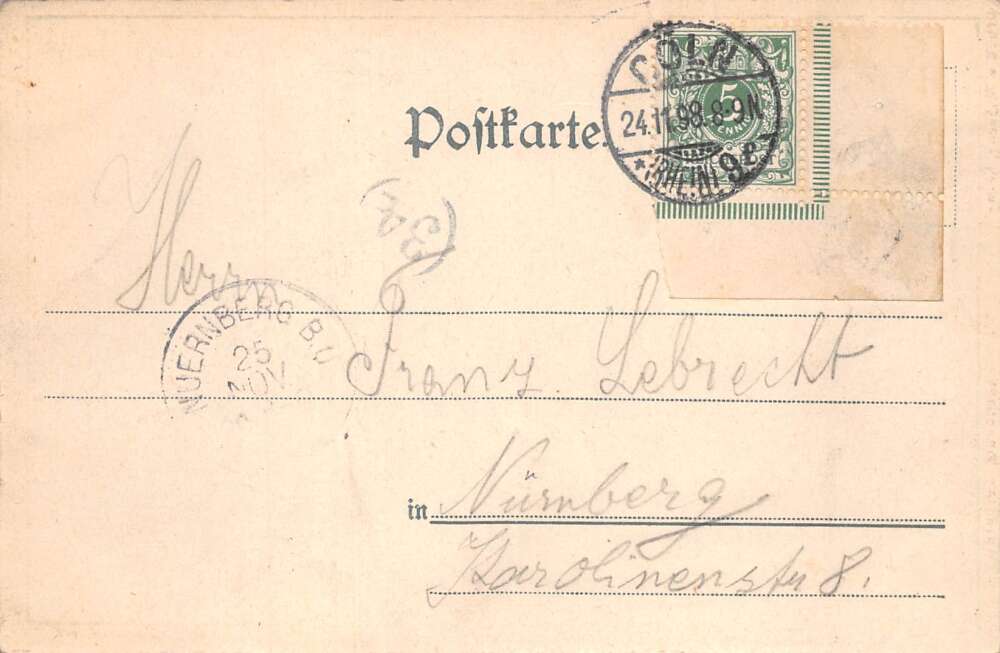 CÖLN
24.11.98.8-9N
* (RHEIN) 9 e *
5
PFENNIG
Postkarte.
(34)
Herrn
NUERNBERG B.U
25
NOV
Franz Lebrecht
in Nürnberg
Karolinenstr 8.